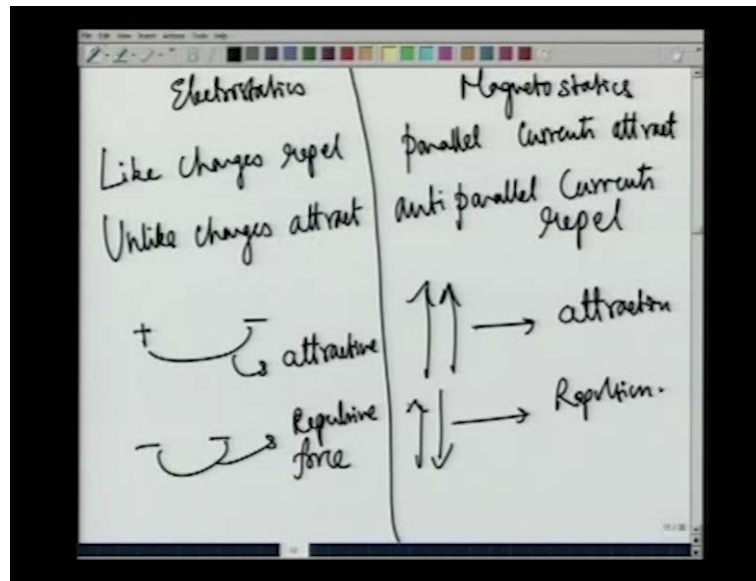 File Edit View Insert Actions Tools Help
Electrostatics
Like charges repel
Unlike charges attract
+ −
attractive
− −
Repulsive
force
Magnetostatics
parallel currents attract
anti parallel Currents
repel
attraction
Repulsion.